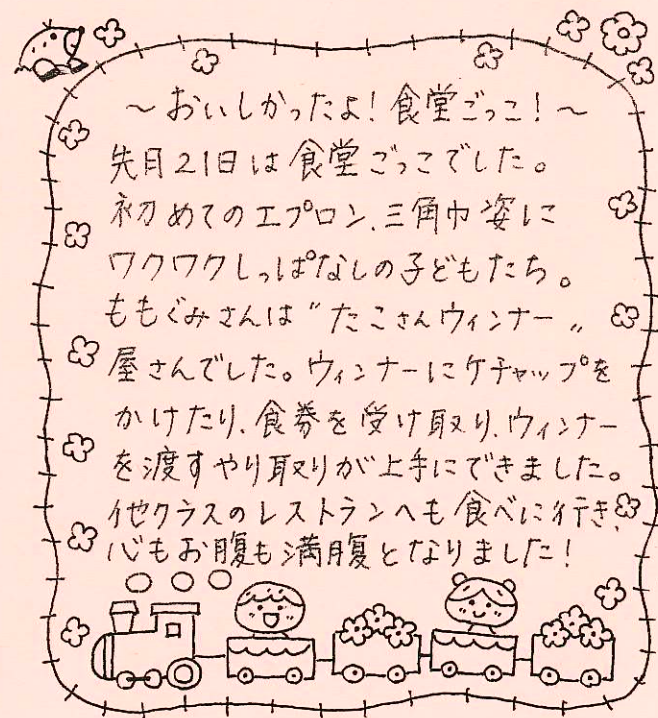 ～おいしかったよ！食堂ごっこ！～
先月21日は食堂ごっこでした。
初めてのエプロン、三角巾姿に
ワクワクしっぱなしの子どもたち。
ももぐみさんは〝たこさんウィンナー〟
屋さんでした。ウィンナーにケチャップを
かけたり、食券を受け取り、ウィンナー
を渡すやり取りが上手にできました。
他クラスのレストランへも食べに行き、
心もお腹も満腹となりました！